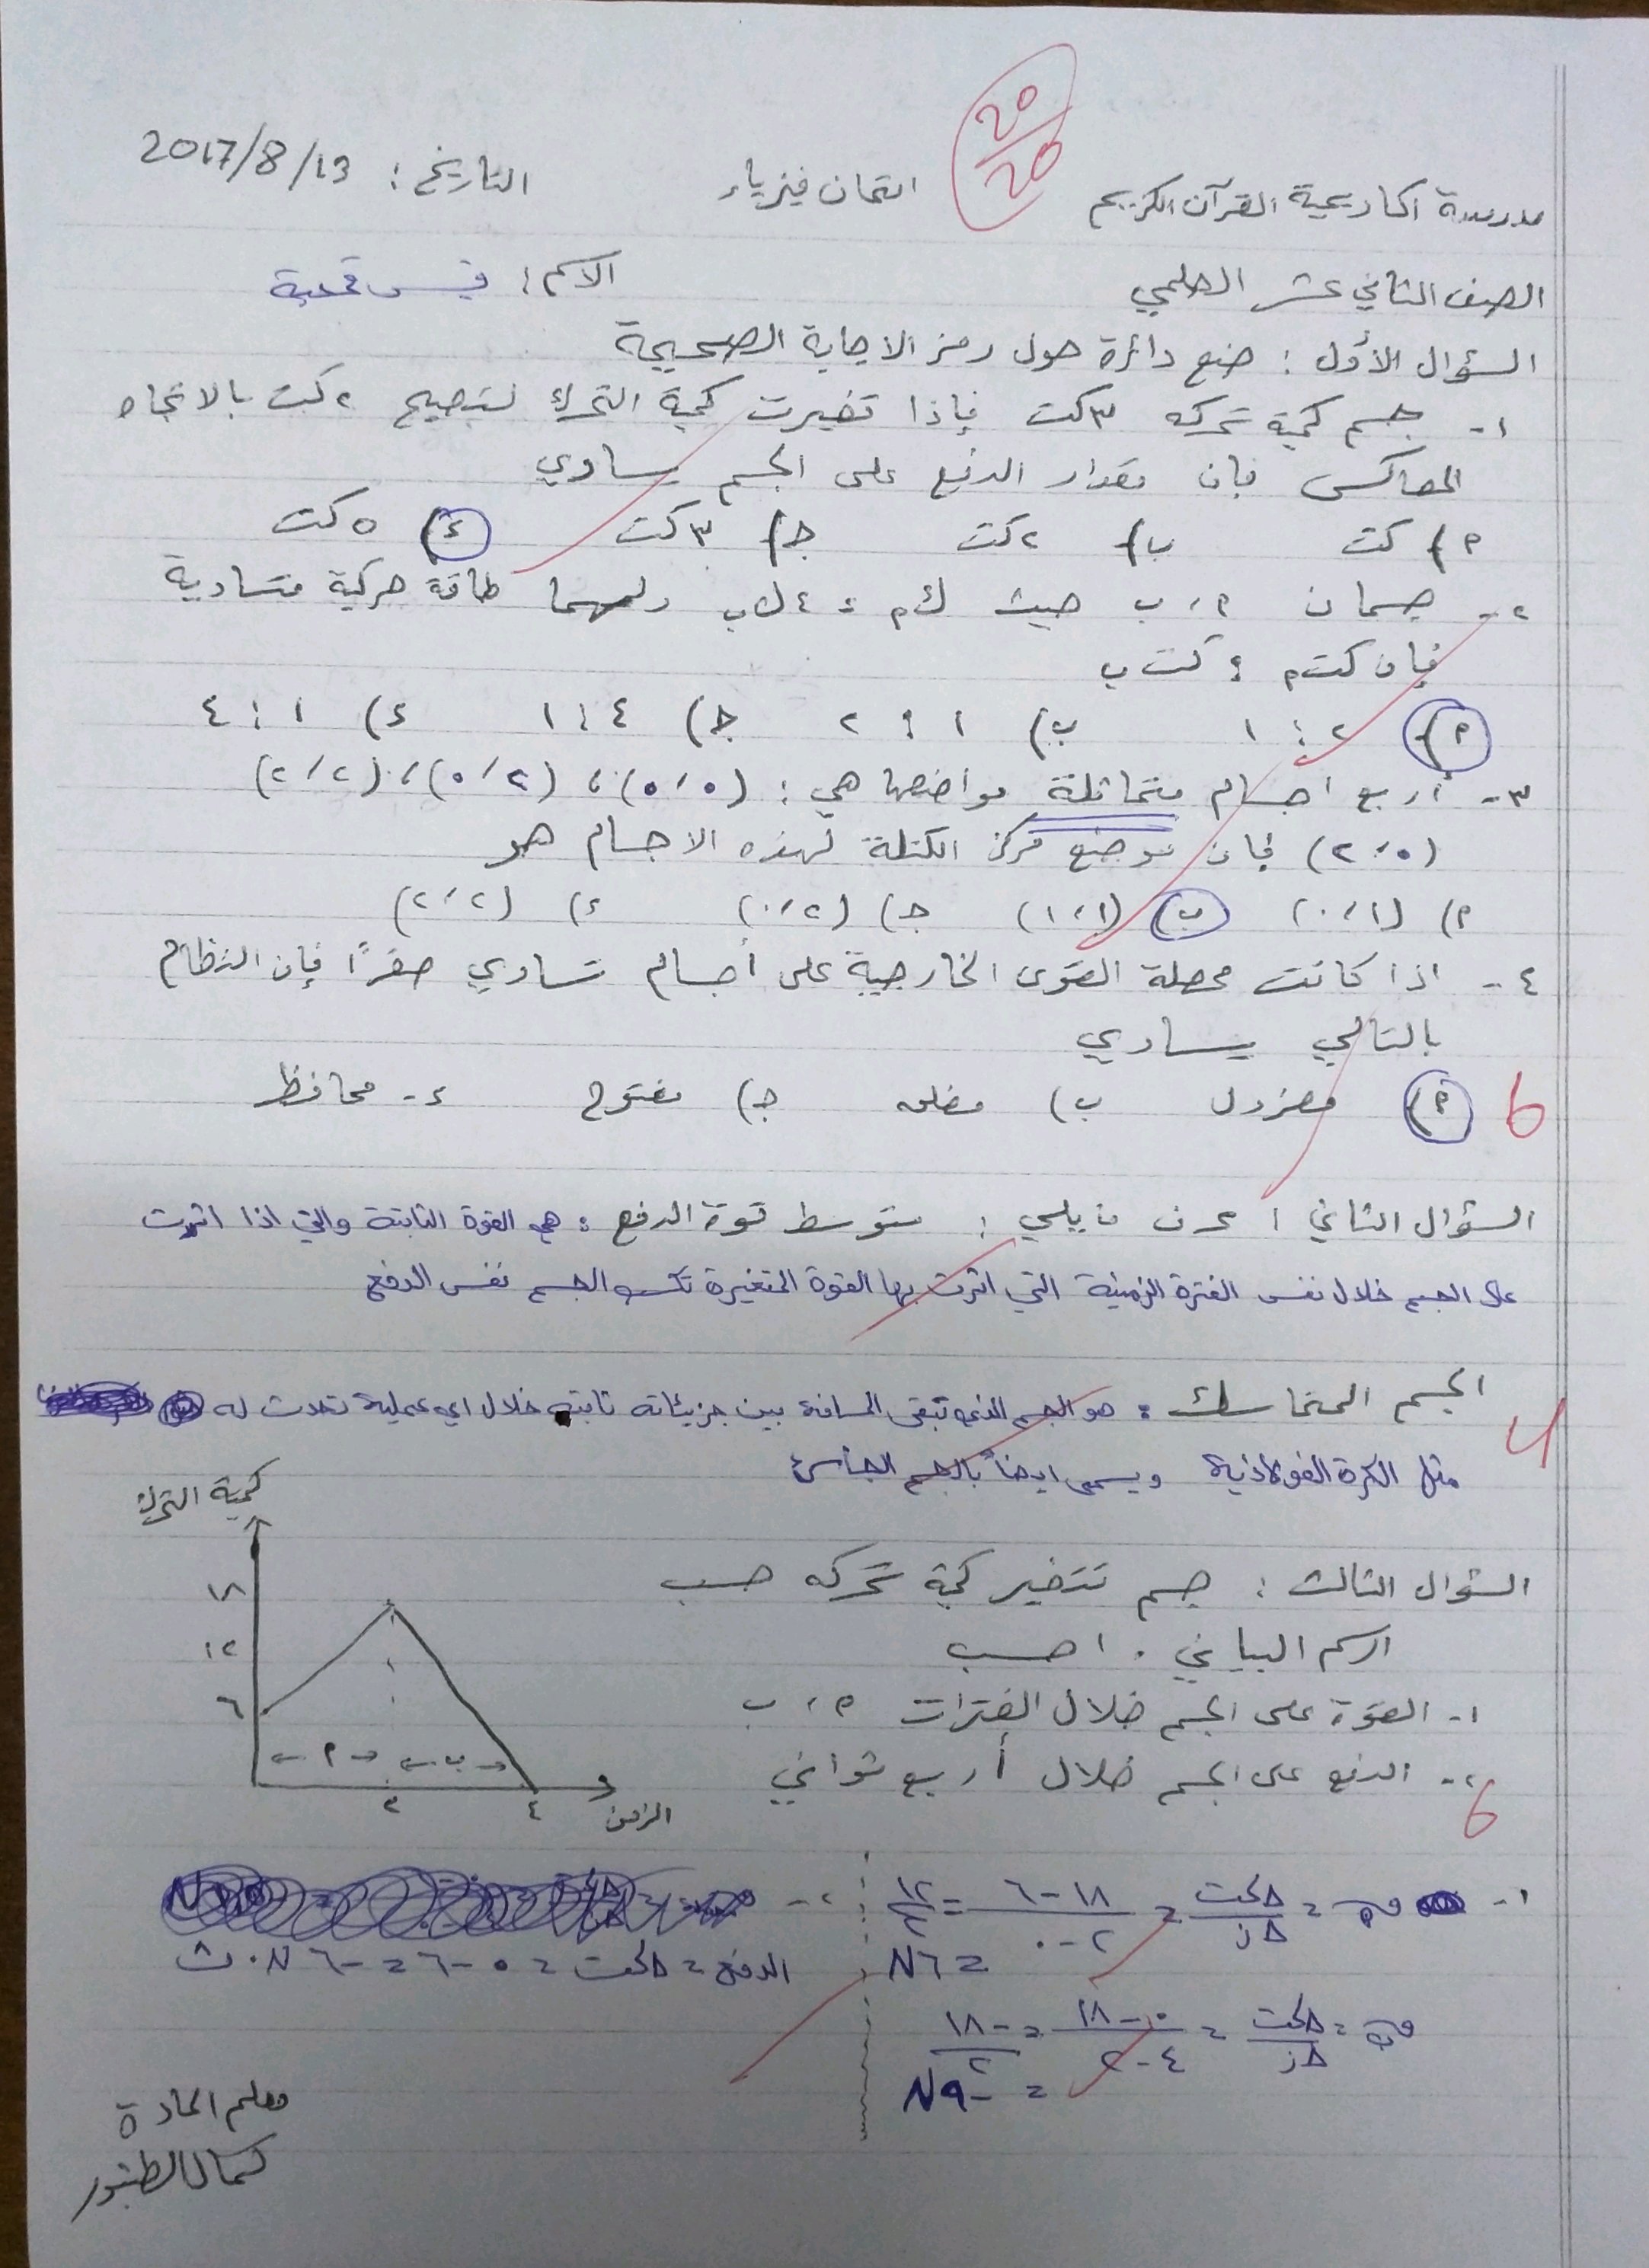 20/20
مدرسة اكاديمية القرآن الكريم امتحان فيزياء التاريخ : 2017/8/13
الصف الثاني عشر العلمي الاسم : قيس قمحية
السؤال الأول : ضع دائرة حول رمز الاجابة الصحيحة
١- جسم كمية تحركه ٣كت فإذا تغيرت كمية التحرك لتصبح ٢كت بالاتجاه
المعاكس فإن مقدار الدفع على الجسم يساوي
م) كت ب) ٢كت ج) ٣كت د) ٥كت
٢- جسمان م، ب حيث كم = ٤ك ب ولهما طاقة حركية متساوية
فإن كت م : كت ب
م) ٢ : ١ ب) ١ : ٢ ج) ٤ : ١ د) ١ : ٤
٣- أربع اجسام متماثلة مواضعها هي : (٠،٠) ، (٠،٢) ، (٢،٢)
(٢،٠) فإن موضع مركز الكتلة لهذه الاجسام هو
م) (٠،١) ب) (١،١) ج) (٠،٢) د) (٢،٢)
٤- اذا كانت محصلة القوى الخارجية على أجسام تساوي صفرًا فإن النظام
بالتالي يساوي
م) معزول ب) مغلق ج) مفتوح د- محافظ
6
السؤال الثاني : عرف ما يلي : متوسط قوة الدفع : هي القوة الثابتة والتي اذا اثرت
على الجسم خلال نفس الفترة الزمنية التي اثرت بها القوة المتغيرة تكسب الجسم نفس الدفع
الجسم المتماسك : هو الجسم الذي تبقى المسافة بين جزيئاته ثابتة خلال اي عملية تحدث له
مثل الكرة الفولاذية ويسمى ايضاً بالجسم الجاسئ
4
السؤال الثالث : جسم تتغير كمية تحركه حسب
الرسم البياني . احسب
١- القوة على الجسم خلال الفترات م، ب
٢- الدفع على الجسم خلال أربع ثواني
6
كمية التحرك
١٨
١٢
٦
م ب
٢ ٤ الزمن
١- ق م = Δكت/Δز = ١٨-٦/٢-٠ = ١٢/٢
= ٦N
ق ب = Δكت/Δز = ٠-١٨/٤-٢ = -١٨/٢
= -٩N
٢-
الدفع = Δكت = ٠-٦ = -٦ N.ث
معلم المادة